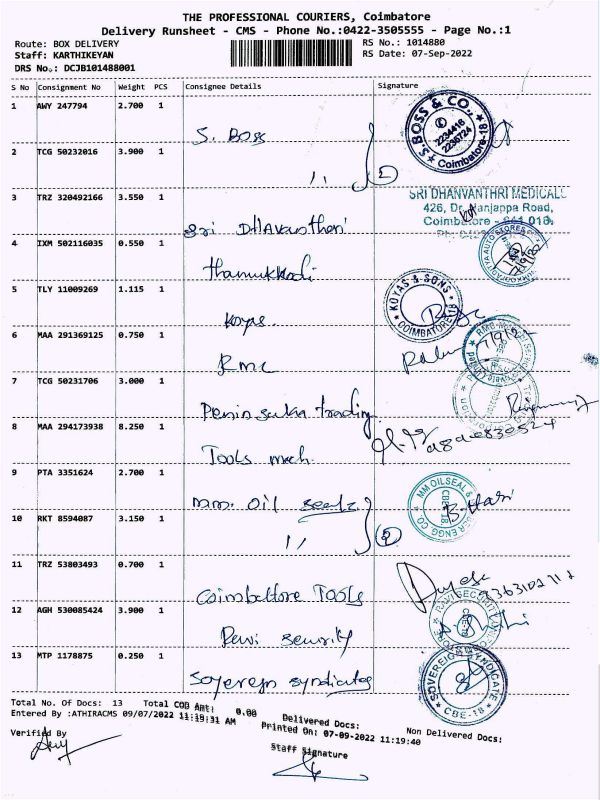 THE PROFESSIONAL COURIERS, Coimbatore
Delivery Runsheet - CMS - Phone No.:0422-3505555 - Page No.:1
Route: BOX DELIVERY
RS No.: 1014880
Staff: KARTHIKEYAN
RS Date: 07-Sep-2022
DRS No.: DCJB101488001
S No Consignment No Weight PCS Consignee Details Signature
1 AWY 247794 2.700 1
S. Boss
S. BOSS & CO., Coimbatore-18
2234418
2 TCG 50232016 3.900 1
,, 2
3 TRZ 320492166 3.550 1
Sri DHAvantheri
SRI DHANVANTHRI MEDICALS
426, Dr. Nanjappa Road,
Coimbatore - 641 018.
4 IXM 502116035 0.550 1
AUTO STORES
5 TLY 11009269 1.115 1
Koyas.
KOYAS & SONS
COIMBATORE-18
6 MAA 291369125 0.750 1
RMC
7 TCG 50231706 3.000 1
Peninsula trading
8 MAA 294173938 8.250 1
Tools mech.
9 PTA 3351624 2.700 1
mm. Oil Sealz
MM OILSEAL &
ENGG CO.
CBE-18
B. Hari
10 RKT 8594087 3.150 1
,, 2
11 TRZ 53803493 0.700 1
Coimbattore Tools
12 AGH 530085424 3.900 1
Ravi security
RAVI SECURITY
13 MTP 1178875 0.250 1
Sovereign syndicate
SOVEREIGN SYNDICATE
CBE-18
Total No. Of Docs: 13 Total COD Amt: 0.00 Delivered Docs: Non Delivered Docs:
Entered By :ATHIRACMS 09/07/2022 11:19:31 AM Printed On: 07-09-2022 11:19:40
Verified By
Staff Signature